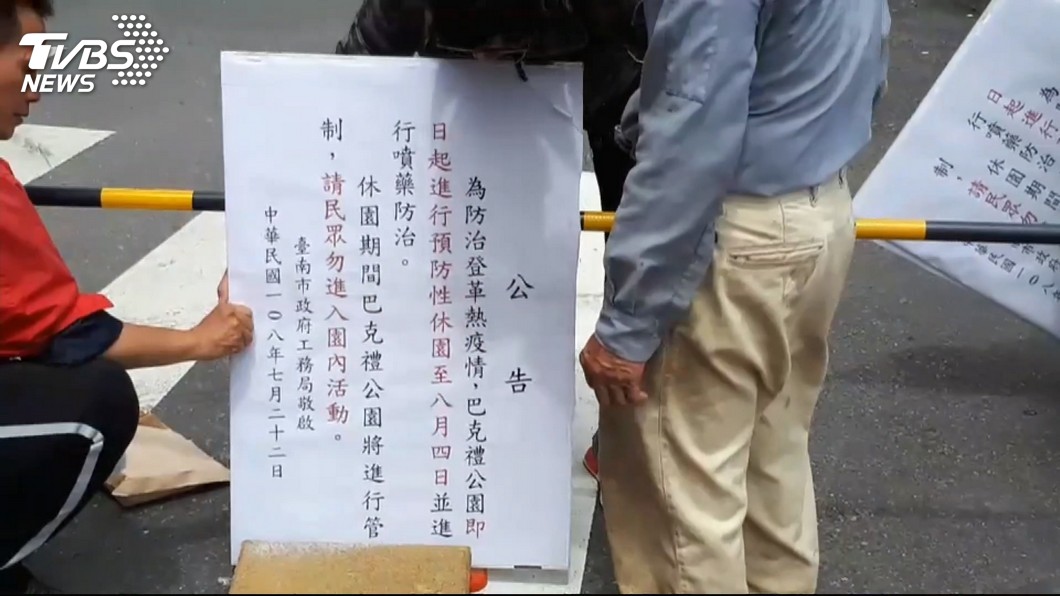 TVBS
NEWS
公告
為防治登革熱疫情，巴克禮公園即
日起進行預防性休園至八月四日並進
行噴藥防治。
休園期間巴克禮公園將進行管
制，請民眾勿進入園內活動。
臺南市政府工務局敬啟
中華民國一○八年七月二十二日
為
日起進行
行噴藥防治
休園期
制，請民眾勿
市政府
民國一○八